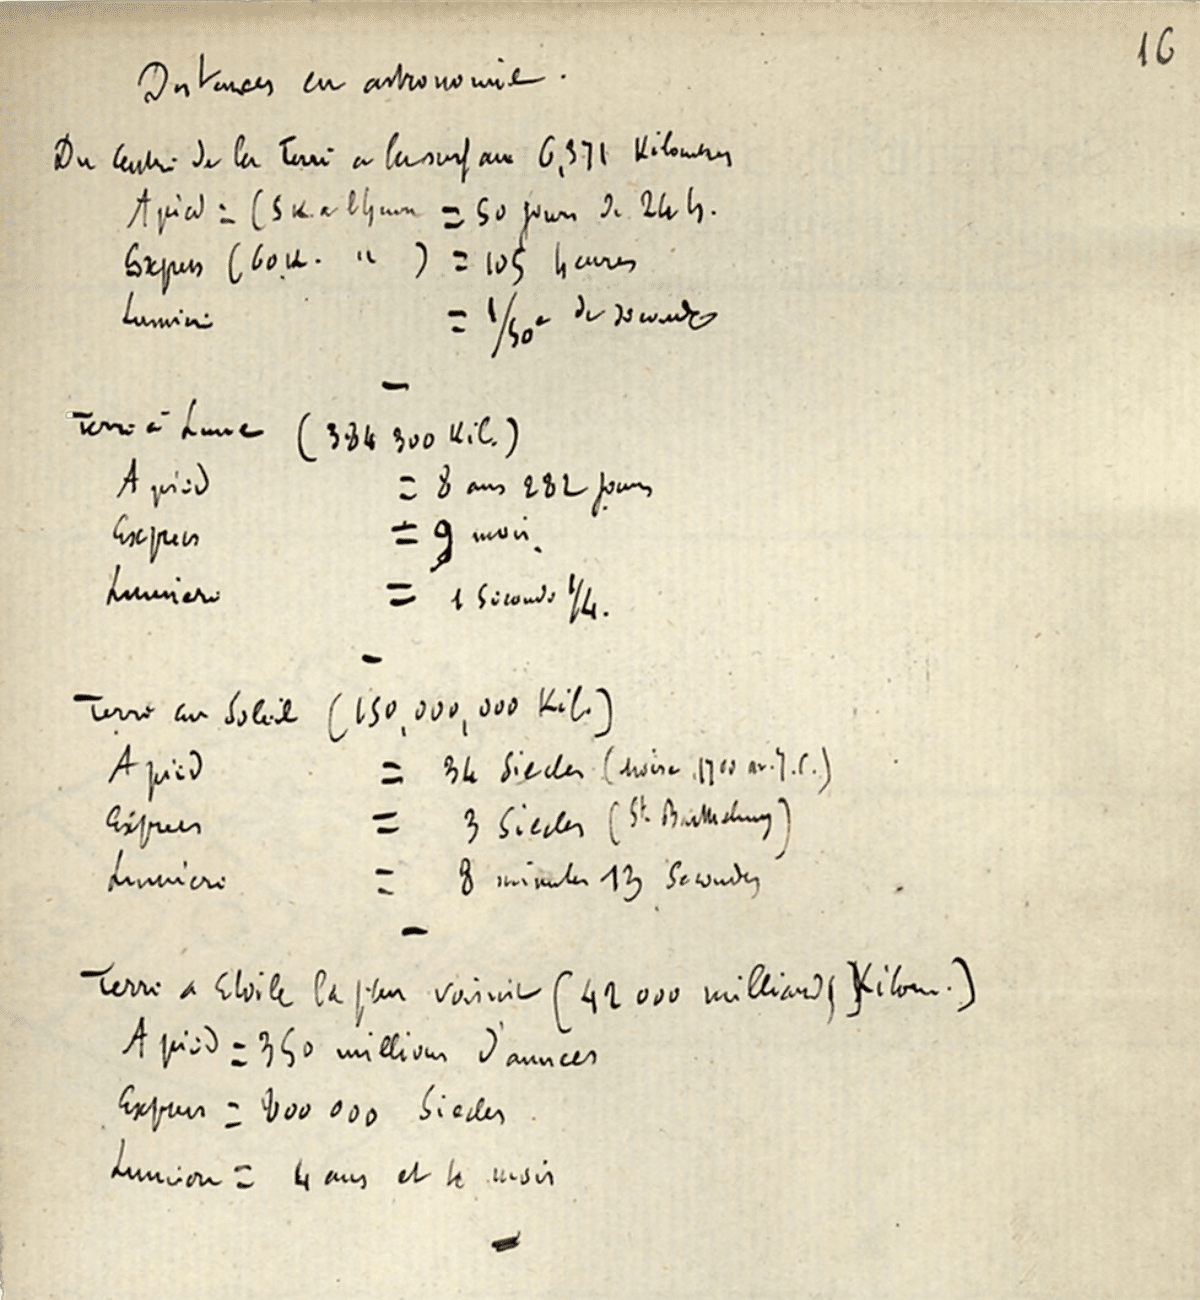 16
Distances en astronomie.
Du centre de la Terre a la surface 6,371 Kilometres
A pied = (5 K. a l'heure = 50 jours de 24 h.
Express (60 K. " ) = 105 heures
Lumiere = 1/50e de seconde
Terre à Lune (384 300 Kil.)
A pied = 8 ans 282 jours
Express = 9 mois.
Lumiere = 1 seconde 1/4.
Terre au Soleil (150,000,000 Kil.)
A pied = 34 Siecles (Moise 1700 av. J. C.)
Express = 3 Siecles (St Barthelemy)
Lumiere = 8 minutes 13 Secondes
Terre a Etoile la plus voisine (42 000 milliards Kilom.)
A pied = 350 millions d'annees
Express = 800 000 Siecles
Lumiere = 4 ans et 4 mois